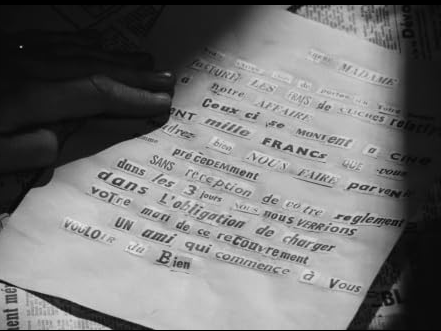 MADAME
facture LES FRAIS de CLICHES relatifs
à notre AFFAIRE
Ceux ci se MONTENT à CINQ
ENT mille FRANCS QUE vous
drez bien NOUS FAIRE parvenir
précédemment
SANS réception de votre règlement
dans les 3 jours nous nous VERRIONS
dans L'obligation de charger
votre mari de ce recouvrement
UN ami qui commence à Vous
VOULOIR du Bien